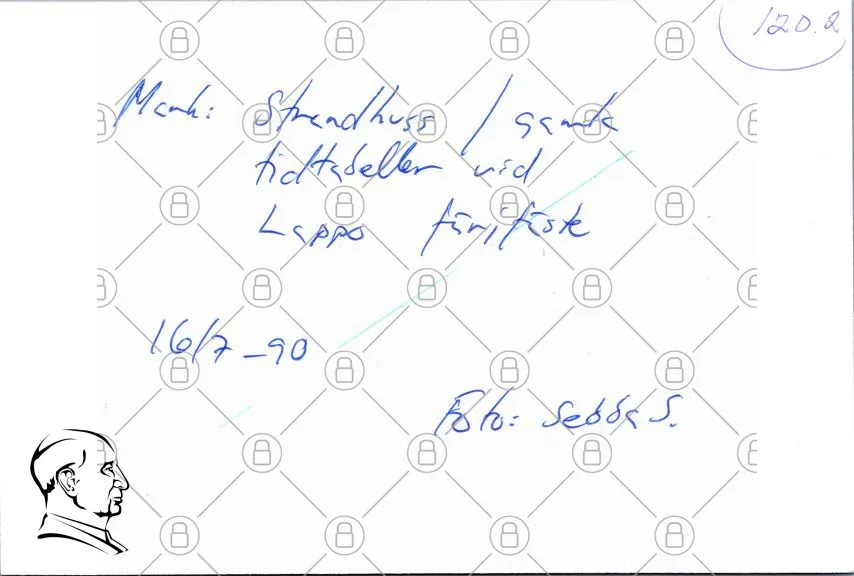 120.2
Mark: Strandhuss / gamla
tidtabeller vid
Lappo färjfäste
16/7 -90
Foto: Sebba S.